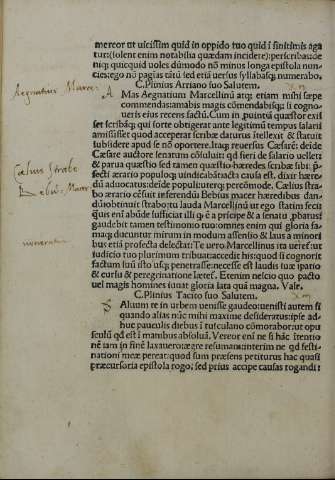 mereor ut uicissim quid in oppido tuo quid ī finitimis aga
tur:(solent enim notabilia quædam incidere):perscribas:de
niq; quicquid uoles dūmodo nō minus longa epistola nun-
cies:ego nō pagīas tātū sed etiā uersus syllabasq; numerabo.
C.Plinius Arriano suo Salutem.
Aegnatius Marce
AMas Aegnatium Marcellinū atq; etiam mihi sæpe
commendas:amabis magis cōmendabisq; si cogno-
ueris eius recens factū. Cum in ꝓuintiā quæstor exis
set scribāq; qui sorte obtigerat ante legitimū tempus salarii
amisisset quod acceperat scribæ daturus ītellexit & statuit
subsidere apud se nō oportere.Itaq; reuersus Cæsarē: deide
Cæsare auctore senatum cōsuluit: qd fieri de salario uellet:
& parua quæstio sed tamen quæstio:hæredes scribæ sibi p̄-
fecti ærario populoq; uindicabāt:acta causa est. dixit hære-
dū aduocatus: deīde populi:uterq; percōmode. Cælius stra-
Cœlius Strabo
Bebius Macer
bo ærario cēsuit inferendū Bebius macer hæredibus dan-
dū:obtinuit strabo:tu lauda Marcellinū ut ego statim feci:
quis enī abūde sufficiat illi q̄ & a prīcipe & a senatu ꝓbatus:
gaudebit tamen testimonio tuo:omnes enim qui gloria fa-
maq; ducuntur mirum in modum assensio & laus a minori
bus etiā profecta delectat: Te uero Marcellinus ita ueret̄:ut
iudicio tuo plurimum tribuat:accedit his:quod si cognorit
factum suū isto usq; penetrasse:necesse est laudis tuæ spatio
& cursu & peregrinatione lætet̄. Etenim nescio quo pacto
uel magis homines iuuat gloria lata quā magna. Vale.
C.Plinius Tacito suo Salutem.
SAluum te in urbem uenisse gaudeo:uenisti autem si
quando alias nūc mihi maxime desideratus:ipse ad-
huc pauculis diebus ī tusculano cōmorabor:ut opus-
culū qd est ī manibus absoluā. Vereor enī ne si hāc ītentio
nē iam in finē laxauero:ægre resumam:interim ne qd festi-
nationi meæ pereat:quod sum præsens petiturus hac quasi
præcursoria epistola rogo: sed prius accipe causas rogandi: